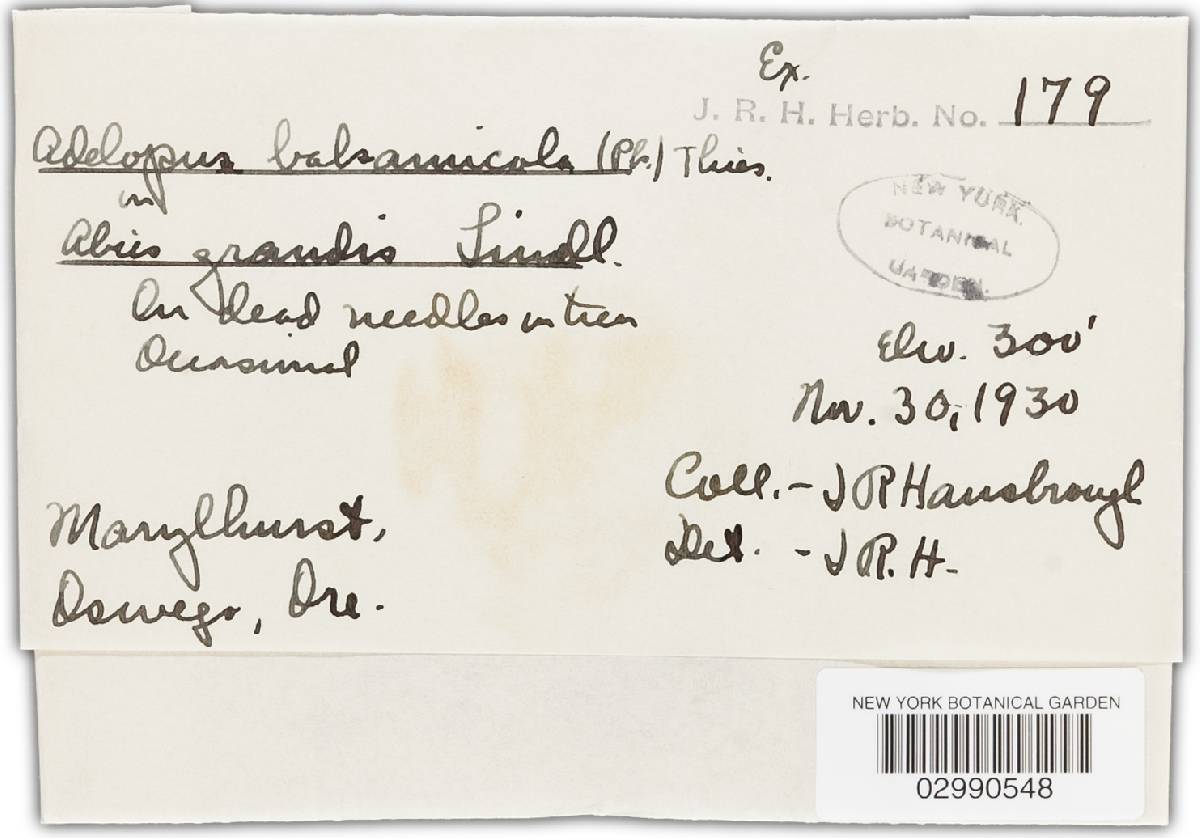 Ex.
J. R. H. Herb. No. 179
Adelopus balsamicola (Pk.) Thies.
on
Abies grandis Lindl.
On dead needles on trees
Occasional
NEW YORK
BOTANICAL
GARDEN
Elev. 300'
Nov. 30, 1930
Coll. - J R Hansbrough
Det. - J R. H -
Marylhurst,
Oswego, Ore.
NEW YORK BOTANICAL GARDEN
02990548